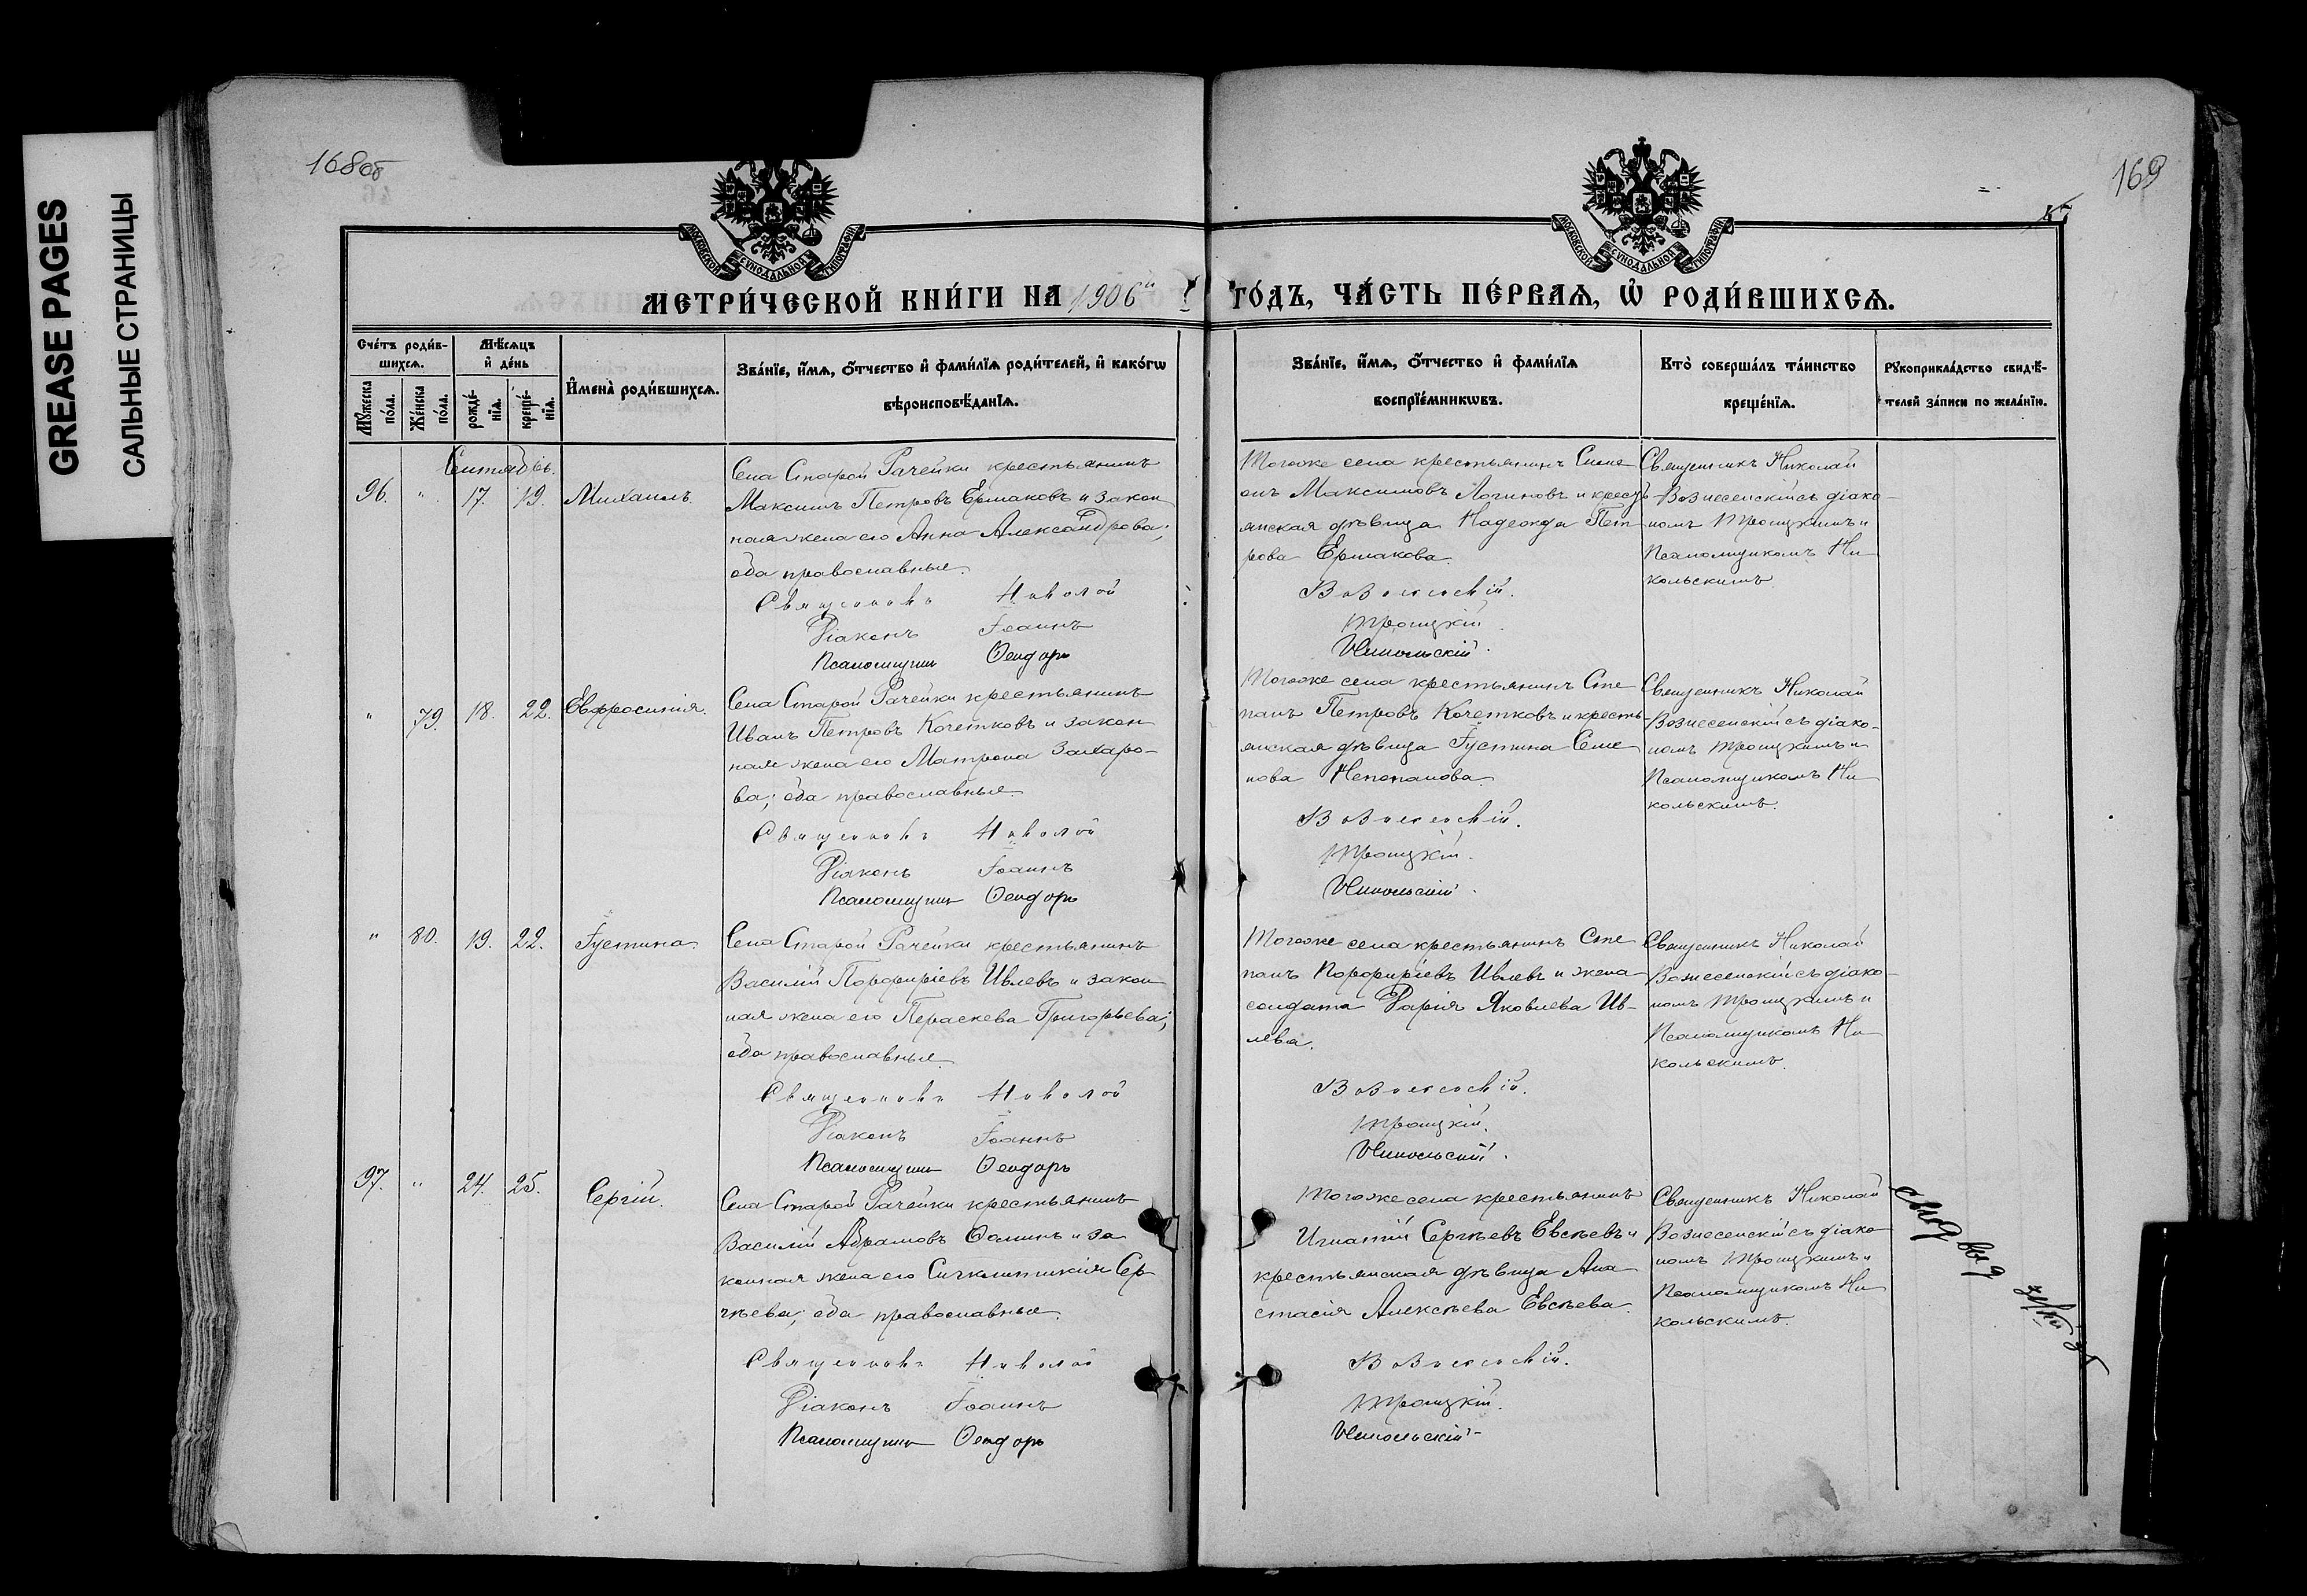 GREASE PAGES
САЛЬНЫЕ СТРАНИЦЫ
168об
169
МОСКОВСКОЙ СѴНОДАЛЬНОЙ ТИПОГРАФІИ
МОСКОВСКОЙ СѴНОДАЛЬНОЙ ТИПОГРАФІИ
МЕТРИ́ЧЕСКОЙ КНИ́ГИ НА 1906й ГО́ДЪ, ЧА́СТЬ ПЕ́РВАѦ, Ѡ҆ РОДИ́ВШИХСѦ.
Сче́тъ роди́в-
шихсѧ.
Мѣ́сѧцъ
и҆ де́нь
Мꙋ́жеска по́ла.
Же́нска по́ла.
рожде́-
нїѧ.
креще́-
нїѧ.
И҆мена̀ роди́вшихсѧ.
Зва́нїе, и҆́мѧ, ѻ҆́тчество и҆ фами́лїѧ роди́телей, и҆ како́гѡ
вѣроисповѣ́данїѧ.
Зва́нїе, и҆́мѧ, ѻ҆́тчество и҆ фами́лїѧ
воспрїе́мникѡвъ.
Кто̀ соверша́лъ та́инство
креще́нїѧ.
Рꙋкоприкла́дство свидѣ́-
телей за́писи по жела́нїю.
Сентябрь.
96. " 17. 19. Михаилъ
Села Старой Рачейки крестьянинъ
Максимъ Петровъ Ермаковъ и закон
ная жена его Анна Александрова;
оба православные.
Священникъ Николай
Діаконъ Іоаннъ
Псаломщикъ Ѳеодоръ
Тогоже села крестьянинъ Симе
онъ Максимовъ Логиновъ и кресть-
янская дѣвица Надежда Пет
рова Ермакова.
Вознесенскій.
Троицкій.
Никольскій.
Священникъ Николай
Вознесенскій съ діако-
номъ Троицкимъ и
Псаломщикомъ Ни
кольскимъ
" 79. 18. 22. Евфросинія.
Села Старой Рачейки крестьянинъ
Иванъ Петровъ Кочетковъ и закон
ная жена его Матрона Захаро-
ва; оба православные.
Священникъ Николай
Діаконъ Іоаннъ
Псаломщикъ Ѳеодоръ
Тогоже села крестьянинъ Сте
панъ Петровъ Кочетковъ и кресть-
янская дѣвица Іустина Семе
нова
Вознесенскій.
Троицкій.
Никольскій.
Священникъ Николай
Вознесенскій съ діако-
номъ Троицкимъ и
Псаломщикомъ Ни
кольскимъ.
" 80. 19. 22. Іустина.
Села Старой Рачейки крестьянинъ
Василій Порфиріевъ Ивлевъ и закон
ная жена его Параскева Григорьева;
оба православные.
Священникъ Николай
Діаконъ Іоаннъ
Псаломщикъ Ѳеодоръ
Тогоже села крестьянинъ Сте
панъ Порфиріевъ Ивлевъ и жена
солдата Дарія Яковлева Ив-
лева.
Вознесенскій.
Троицкій.
Никольскій.
Священникъ Николай
Вознесенскій съ діако-
номъ Троицкимъ и
Псаломщикомъ Ни
кольскимъ.
97. " 24. 25. Сергій.
Села Старой Рачейки крестьянинъ
Василій Абрамовъ Ѳоминъ и за
конная жена его Сигклитикія Сер
гѣева; оба православные.
Священникъ Николай
Діаконъ Іоаннъ
Псаломщикъ Ѳеодоръ
Тогоже села крестьянинъ
Игнатій Сергѣевъ Евсѣевъ и
крестьянская дѣвица Ана
стасія Алексѣева Евсѣева.
Вознесенскій.
Троицкій.
Никольскій
Священникъ Николай
Вознесенскій съ діако
номъ Троицкимъ и
Псаломщикомъ Ни
кольскимъ.